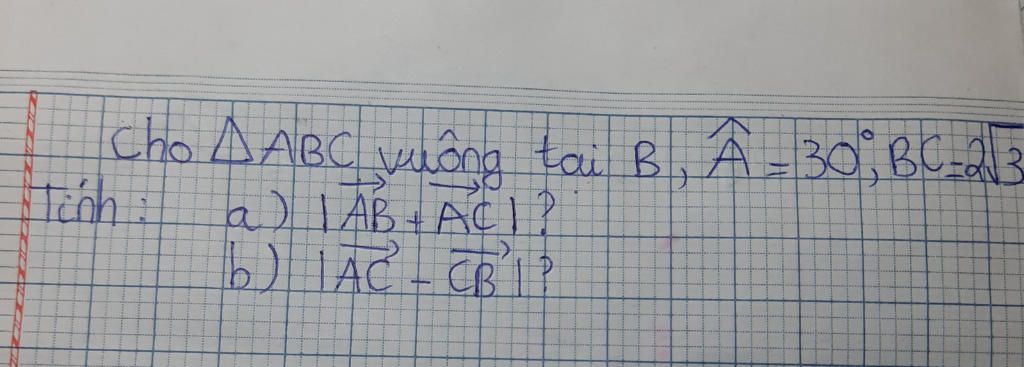 Cho △ABC vuông tại B, $\widehat{A}$ = 30°, BC = 2√3
Tính: a) |$\overrightarrow{AB}$ + $\overrightarrow{AC}$| ?
b) |$\overrightarrow{AC}$ - $\overrightarrow{CB}$| ?